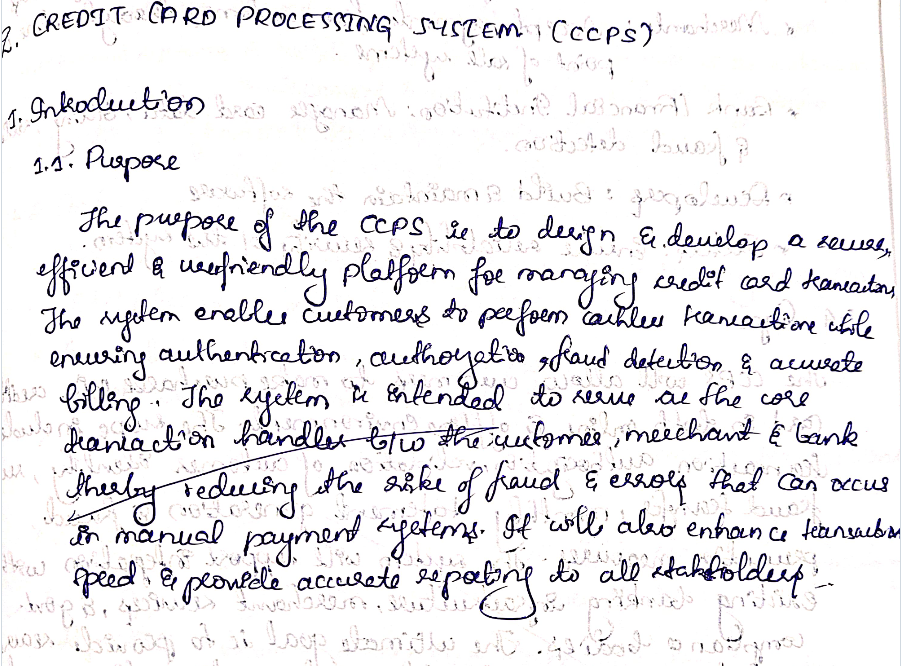 2. CREDIT CARD PROCESSING SYSTEM (CCPS)
1. Introduction
1.1: Purpose
The purpose of the CCPS is to design & develop a secure,
efficient & userfriendly platform for managing credit card transactions,
The system enables customers to perform cashless transactions while
ensuring authentication, authoyation, fraud detection & accurate
billing. The system is intended to serve as the core
transaction handler b/w the customer, merchant & bank
therby reducing the risks of fraud & errors that can occur
in manual payment systems. It will also enhance transaction
speed & provide accurate reporting to all stakholders.